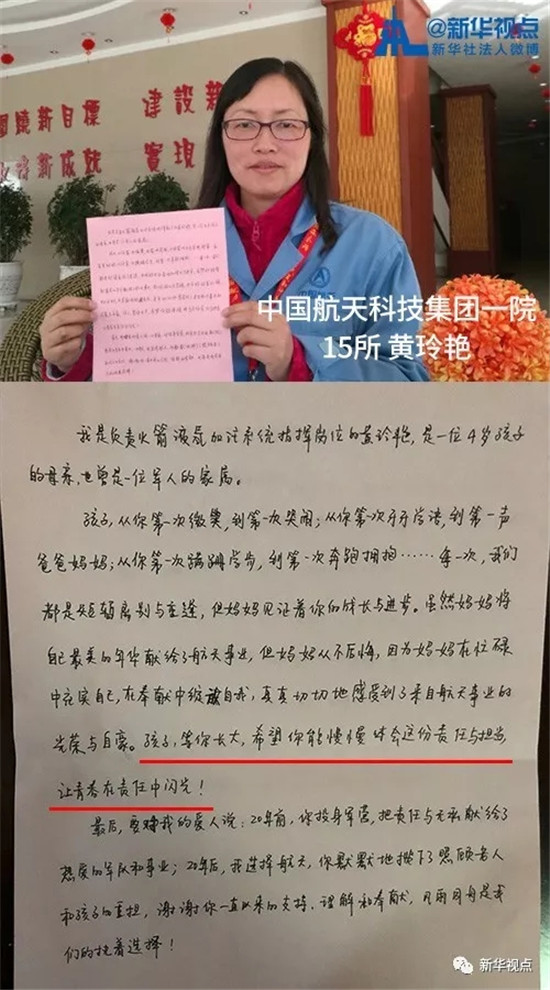 @新华视点
新华社法人微博
建設新
實現
中国航天科技集团一院
15所 黄玲艳
我是负责火箭液氢加注系统指挥岗位的黄玲艳,是一位4岁孩子
的母亲,也曾是一位军人的家属。
孩子,从你第一次微笑,到第一次哭闹;从你第一次牙牙学语,到第一声
爸爸妈妈;从你第一次蹒跚学步,到第一次奔跑拥抱……每一次,我们
都是短暂离别与重逢,但妈妈见证着你的成长与进步。虽然妈妈将
自己最美的年华献给了航天事业,但妈妈从不后悔,因为妈妈在忙碌
中充实自己,在奉献中绽放自我,真真切切地感受到了来自航天事业的
光荣与自豪。孩子,等你长大,希望你能慢慢体会这份责任与担当,
让青春在责任中闪光!
最后,要对我的爱人说:20年前,你投身军营,把责任与无私献给了
热爱的军队和事业;20年后,我选择航天,你默默地撑下了照顾老人
和孩子的重担,谢谢你一直以来的支持、理解和奉献,风雨同舟是我
们的执着选择!
新华视点